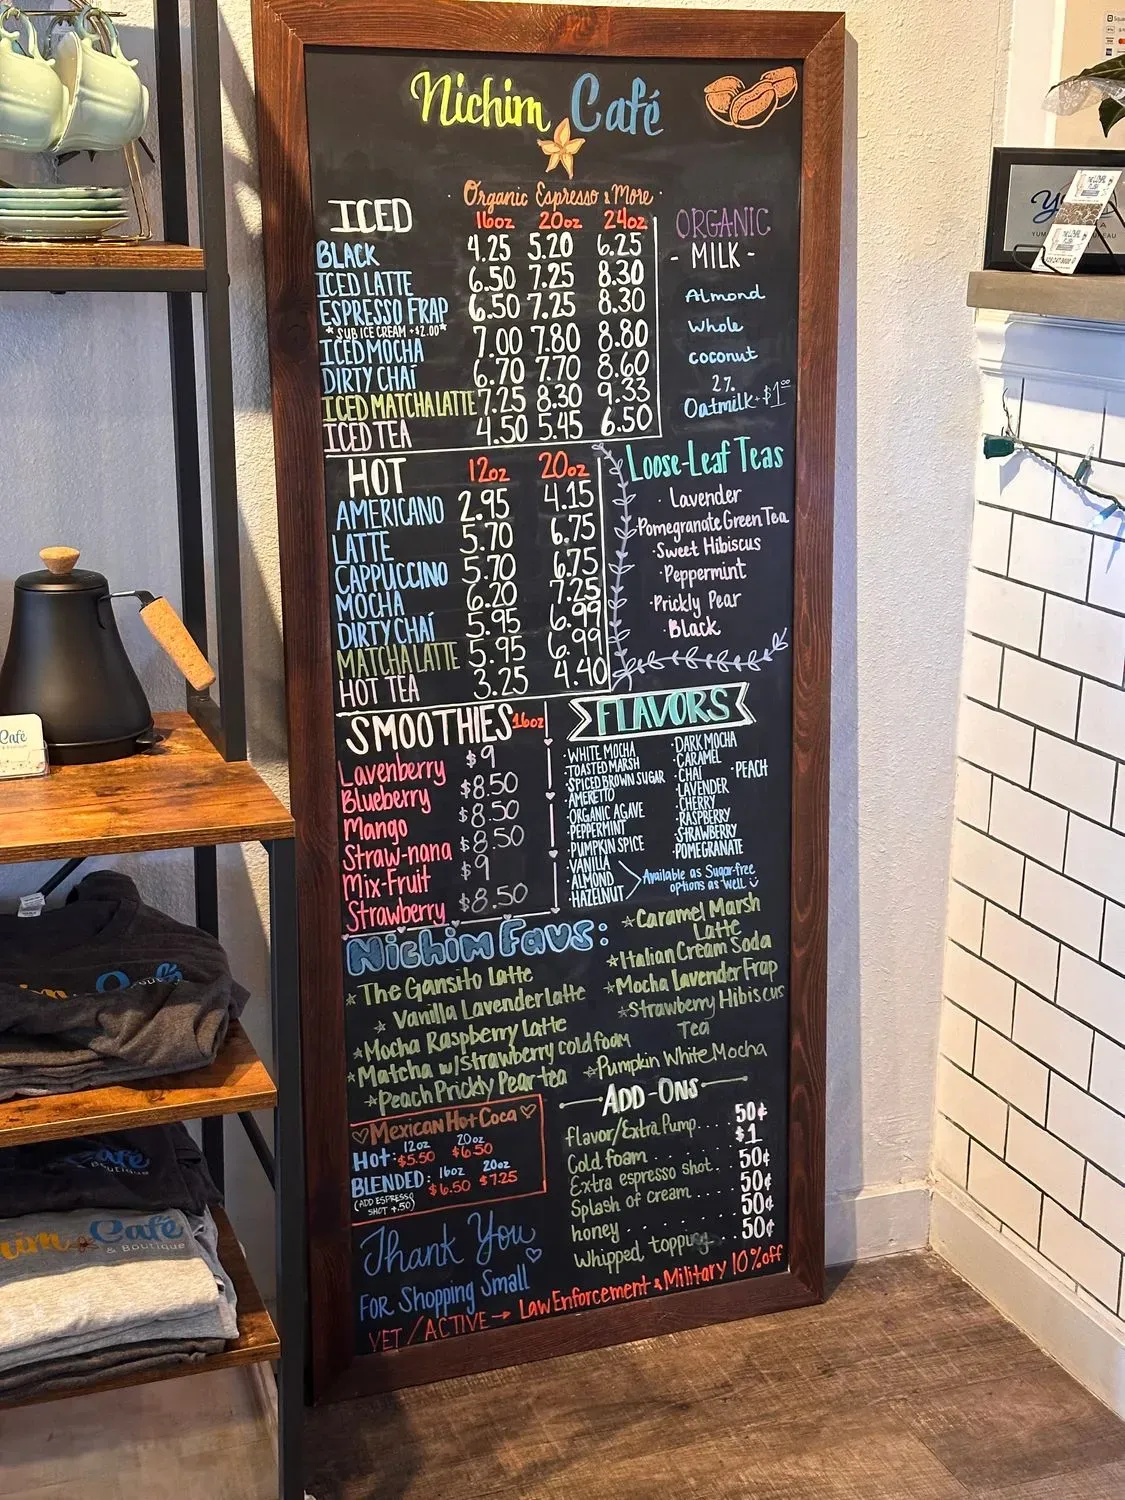 Nichim Café
Organic Espresso & More
ICED 16oz 20oz 24oz
BLACK 4.25 5.20 6.25
ICED LATTE 6.50 7.25 8.30
ESPRESSO FRAP 6.50 7.25 8.30
*SUB ICE CREAM +$2.00*
ICED MOCHA 7.00 7.80 8.80
DIRTY CHAI 6.70 7.70 8.60
ICED MATCHA LATTE 7.25 8.30 9.33
ICED TEA 4.50 5.45 6.50
ORGANIC
- MILK -
Almond
Whole
coconut
2%
Oatmilk +$1⁰⁰
HOT 12oz 20oz
AMERICANO 2.95 4.15
LATTE 5.70 6.75
CAPPUCCINO 5.70 6.75
MOCHA 6.20 7.25
DIRTY CHAI 5.95 6.99
MATCHA LATTE 5.95 6.99
HOT TEA 3.25 4.40
Loose-Leaf Teas
· Lavender
· Pomegranate Green Tea
· Sweet Hibiscus
· Peppermint
· Prickly Pear
· Black
SMOOTHIES 16oz
Lavenberry $9
Blueberry $8.50
Mango $8.50
Straw-nana $8.50
Mix-Fruit $9
Strawberry $8.50
FLAVORS
· WHITE MOCHA
· TOASTED MARSH
· SPICED BROWN SUGAR
· AMERETTO
· ORGANIC AGAVE
· PEPPERMINT
· PUMPKIN SPICE
· VANILLA
· ALMOND
· HAZELNUT
Available as Sugar-free
options as well
· DARK MOCHA
· CARAMEL
· CHAI
· LAVENDER
· CHERRY
· RASPBERRY
· STRAWBERRY
· POMEGRANATE
· PEACH
Nichim Favs:
The Gansito Latte
Vanilla Lavender latte
Mocha Raspberry Latte
Matcha w/Strawberry cold foam
Peach Prickly Pear tea
Caramel Marsh
Latte
Italian Cream Soda
Mocha Lavender Frap
Strawberry Hibiscus
Tea
Pumpkin White Mocha
Mexican Hot Coca
12oz 20oz
Hot: $5.50 $6.50
16oz 20oz
BLENDED: $6.50 $7.25
(ADD ESPRESSO
SHOT +.50)
ADD-ONS
flavor/Extra Pump.... 50¢
Cold foam $1
Extra espresso shot.. 50¢
Splash of cream .... 50¢
honey . . . . . . 50¢
Whipped topping .. 50¢
Thank You
FOR Shopping Small
VET/ACTIVE → Law Enforcement & Military 10% off
Café
Café
& Boutique